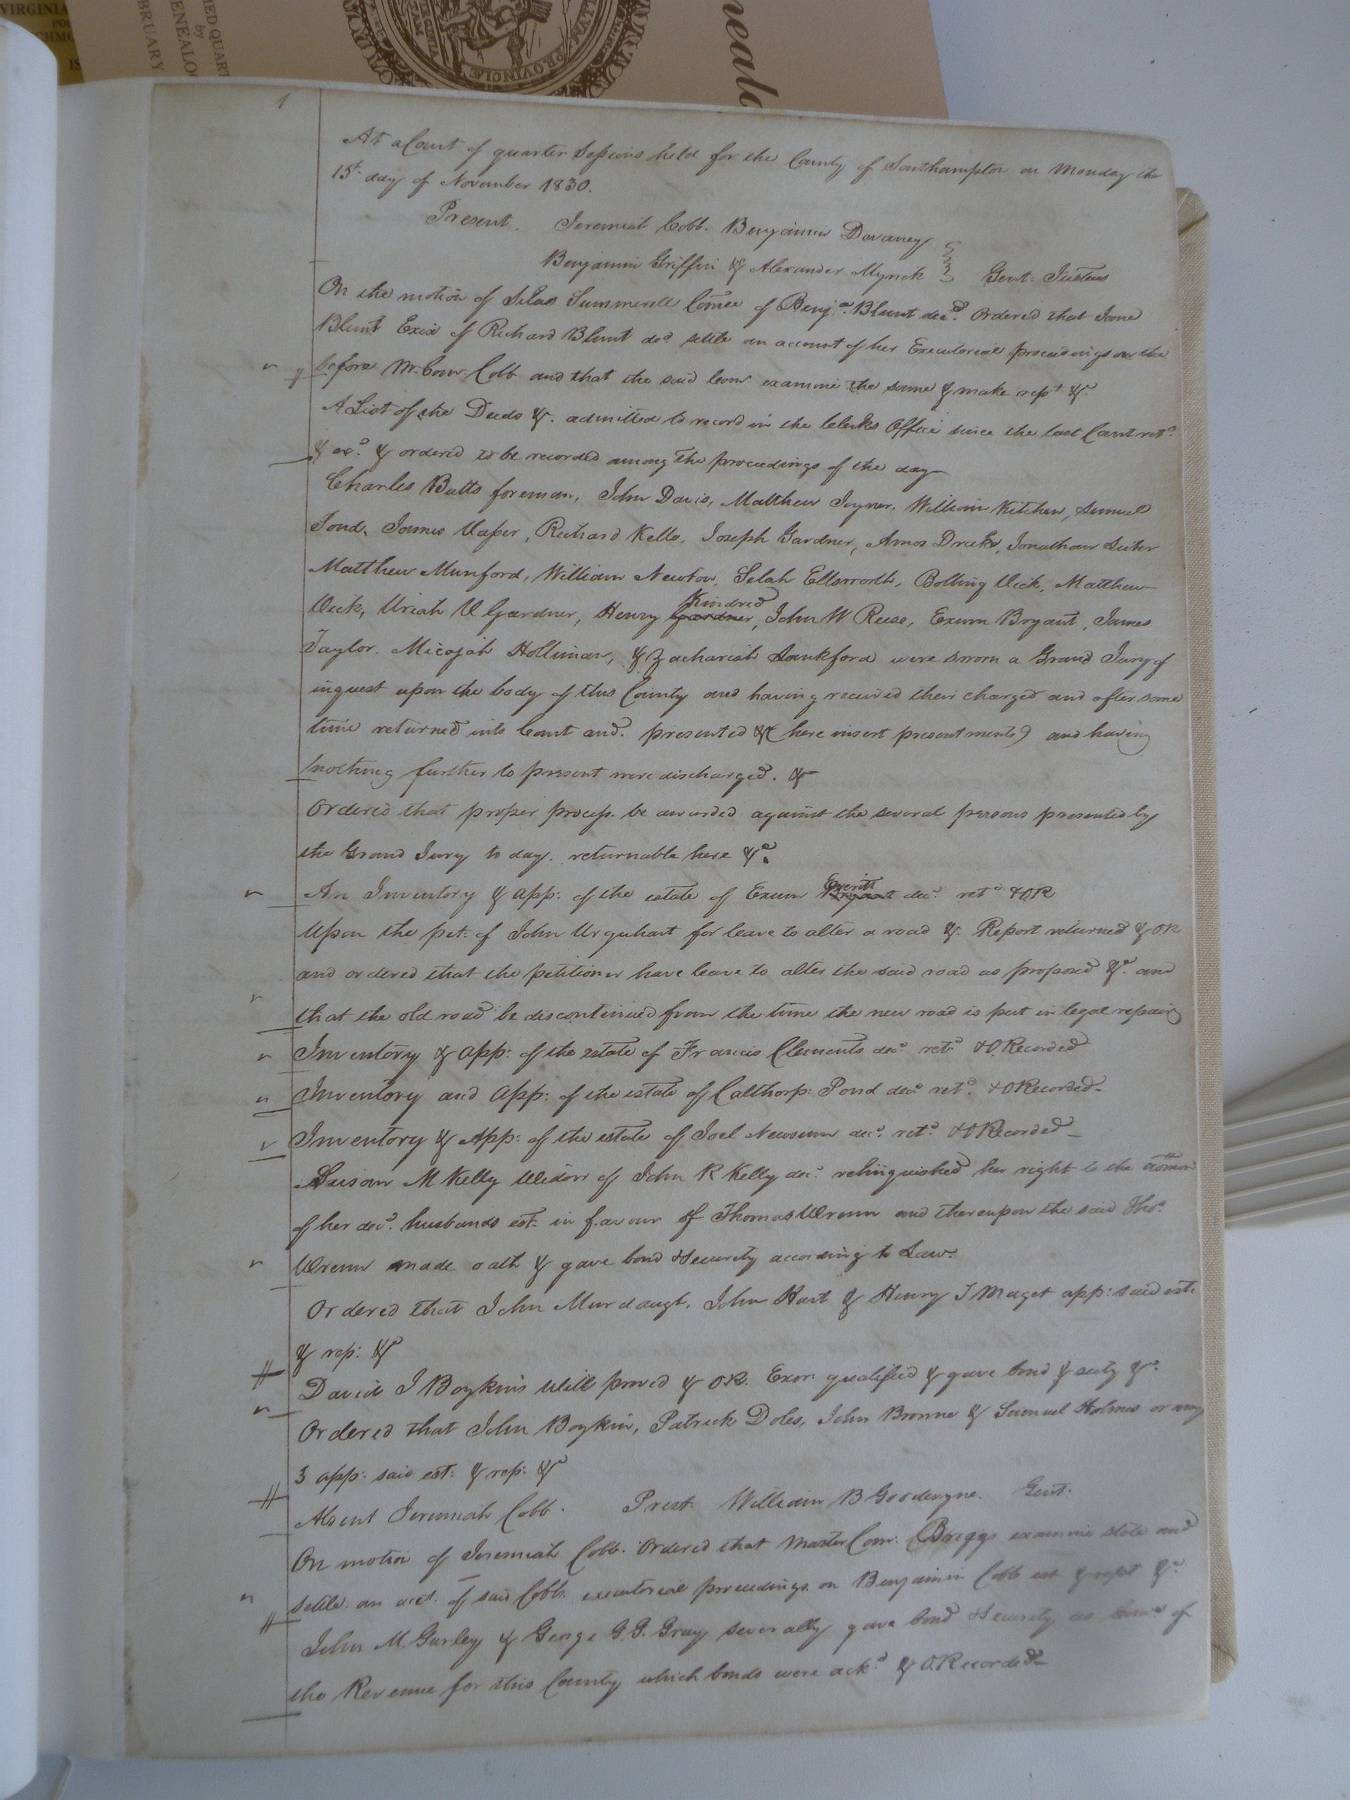 VIRGINIA
FEBRUARY
GENEALO
by
PROVINCIÆ
neald
1
At a Court of quarter Sessions held for the County of Southampton on Monday the
15t. day of November 1830.
Present. Jeremiah Cobb. Benjamin Devaney
Benjamin Griffin & Alexander Myrick Gent. Justices
On the motion of Silas Summerell Comee of Benja. Blunt decd. Ordered that
Blunt Exix of Richard Blunt decd settle an account of her Executorial proceedings on the
before Mr. Comr. Cobb and that the said Comr examine the same & make rept &c
A List of the Deeds &. admitted to record in the Clerks Office since the last Court retd.
& exd. & ordered to be recorded among the proceedings of the day
Charles Butts foreman, John Davis, Matthew Joyner, William Kitchen, Samuel
James Vasser, Richard Kello, Joseph Gardner, Amos Drake, Jonathan Lester
Matthew Munford, William Newton, Selah Ellsworth, Bolling Vick, Matthew
Vick, Uriah V Gardner, Henry Kindred Gardner, John W Reese, Exum Bryant, James
Taylor. Micajah Holliman, & Zachariah Lankford were sworn a Grand Jury of
inquest upon the body of this County and having received their charge and after some
time returned into Court and. presented &( here insert presentments) and having
nothing further to present were discharged. &
Ordered that proper process. be awarded against the several persons presented by
the Grand Jury to day. returnable here &c.
An Inventory & app: of the estate of Exum Everitt Bryant decd. retd. & OR
Upon the pet: of John Urquhart for leave to alter a road &. Report returned & OR
and ordered that the petitioner have leave to alter the said road as proposed &c. and
that the old road be discontinued from the time the new road is put in legal repair
Inventory & app: of the estate of Francis Clements decd. retd. & O Recorded
Inventory and App: of the estate of Calthorp: Pond decd retd. & O Recorded
Inventory & App: of the estate of Joel Newsum decd. retd. & O Recorded
Susan M Kelly Widow of John R Kelly decd. relinquished her right to the admon
of her decd. husbands est: in favour of Thomas Wrenn and thereupon the said Thos.
Wrenn made oath & gave bond & Security according to Law.
Ordered that John Murdaugh. John Hart & Henry J Maget app: said est:
& rep: &c
David J Boykin's Will proved & OR. Exor. qualified & gave bond & secty &c.
Ordered that John Boykin, Patrick Doles, John Browne & Samuel Holmes or any
3 app: said est: & rep: &c
Absent Jeremiah Cobb. Prest. William B Goodwyne. Gent.
On motion of Jeremiah Cobb. Ordered that Master Comr. Briggs examine state and
settle. an acct. of said Cobbs executorial proceedings on Benjamin Cobb est & rept &c.
John M. Gurley & George G. G. Gray severally gave bond & Security as of
the Revenue for this County which bonds were ackd. & O. Recorded